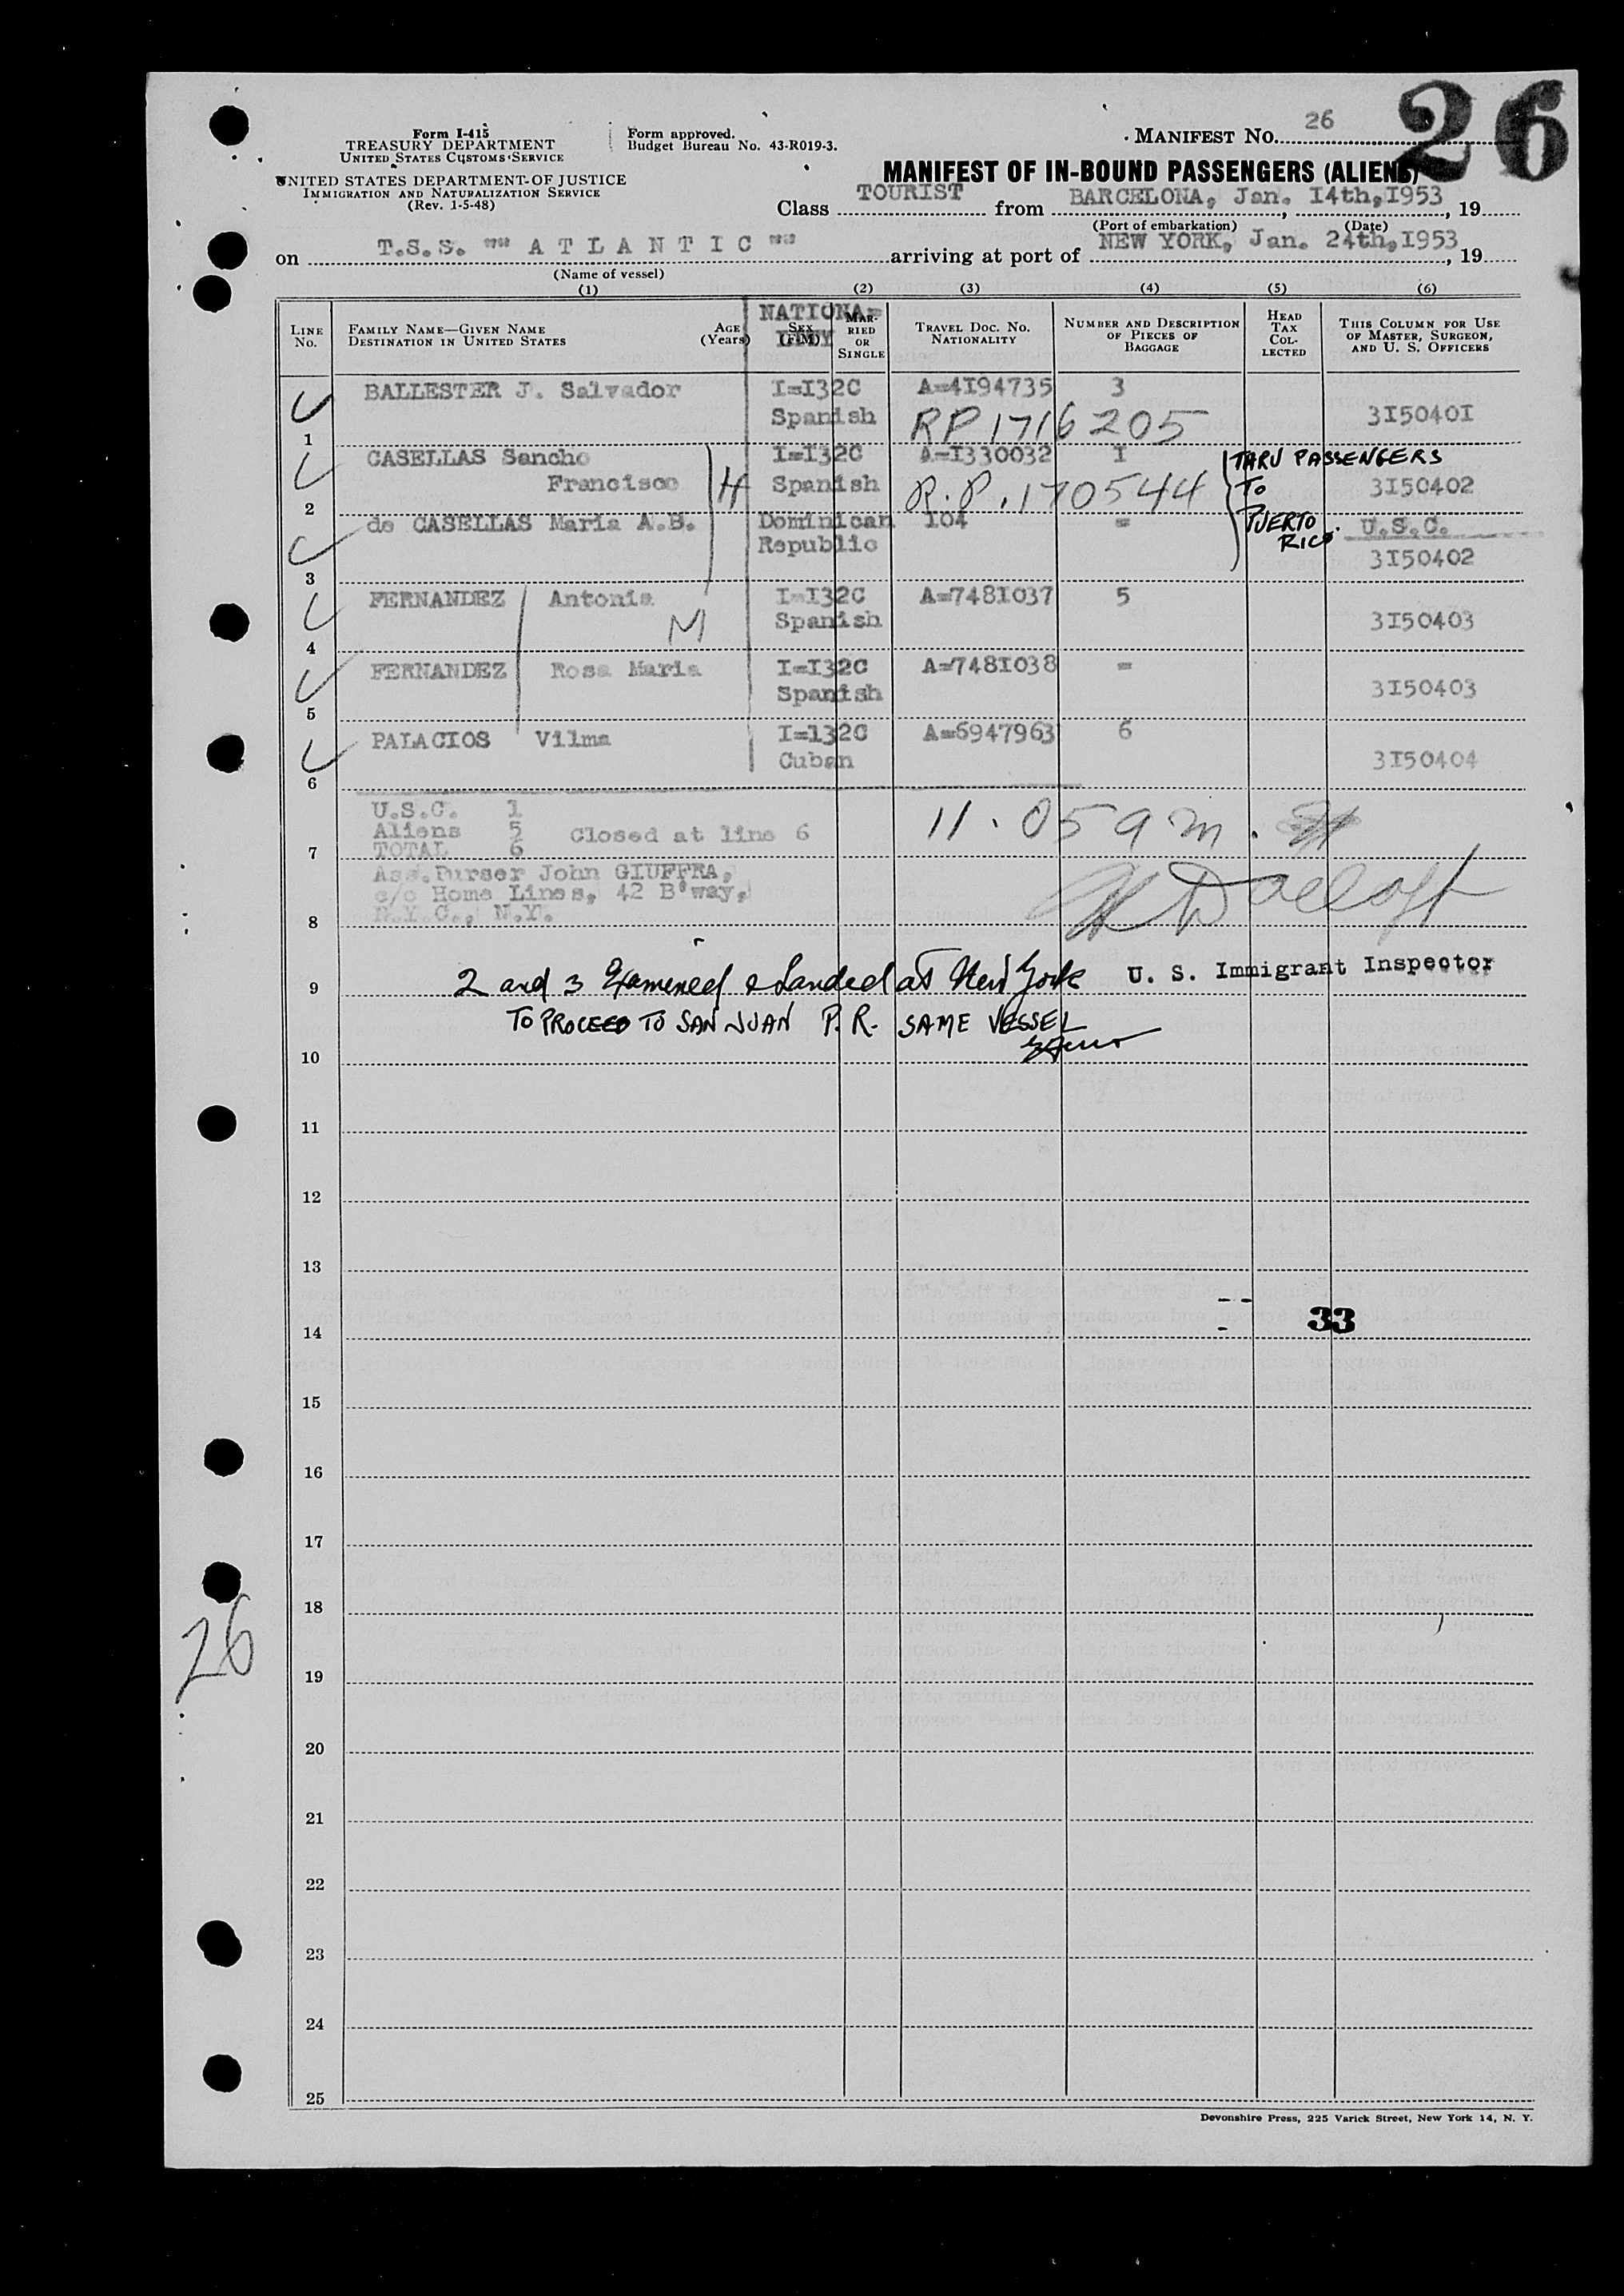 26
Form I-415
TREASURY DEPARTMENT
UNITED STATES CUSTOMS SERVICE
UNITED STATES DEPARTMENT OF JUSTICE
IMMIGRATION AND NATURALIZATION SERVICE
(Rev. 1-5-48)
Form approved.
Budget Bureau No. 43-R019-3.
MANIFEST No. 26
MANIFEST OF IN-BOUND PASSENGERS (ALIENS)
Class TOURIST from BARCELONA, Jan. I4th,I953, 19
(Port of embarkation) (Date)
on T.S.S. "" A T L A N T I C "" arriving at port of NEW YORK, Jan. 24th,I953, 19
(Name of vessel)
(1) (2) (3) (4) (5) (6)
LINE No. FAMILY NAME—GIVEN NAME DESTINATION IN UNITED STATES AGE (Years) SEX (F-M) NATIONA= MARRIED OR SINGLE TRAVEL DOC. NO. NATIONALITY NUMBER AND DESCRIPTION OF PIECES OF BAGGAGE HEAD TAX COLLECTED THIS COLUMN FOR USE OF MASTER, SURGEON, AND U. S. OFFICERS
BALLESTER J. Salvador I=I32C A=4I94735 3
1 Spanish RP 1716205 3I5040I
CASELLAS Sancho I=I32C A=I330032 I THRU PASSENGERS
2 Francisco H Spanish R.P. 170544 TO 3I50402
de CASELLAS Maria A.B. Dominican I04 = PUERTO RICO. U.S.C.
3 Republic 3I50402
FERNANDEZ Antonia I=I32C A=748I037 5
4 M Spanish 3I50403
FERNANDEZ Rosa Maria I=I32C A=748I038 =
5 Spanish 3I50403
PALACIOS Vilma I=132C A=6947963 6
6 Cuban 3I50404
U.S.C. 1
Aliens 5 Closed at line 6 11.05 am.
7 TOTAL 6
Ass.Purser John GIUFFRA,
c/o Home Lines, 42 B'way,
8 N.Y.C., N.Y.
U. S. Immigrant Inspector
9 2 and 3 Examined & Landed at New York
TO PROCEED TO SAN JUAN P.R. SAME VESSEL
10
11
12
13
14 33
15
16
17
18
26
19
20
21
22
23
24
25
Devonshire Press, 225 Varick Street, New York 14, N. Y.